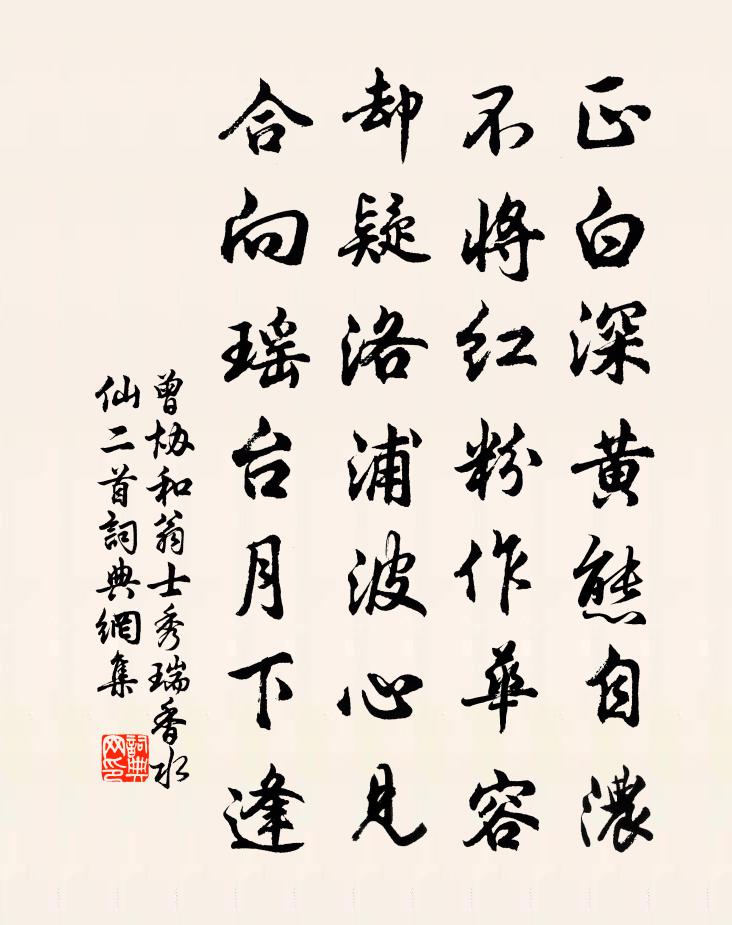 正白深黄態自濃
不將紅粉作華容
却疑洛浦波心見
合向瑶台月下逢
曾協和翁士秀瑞香水
仙二首詞典網集
詞典
网印